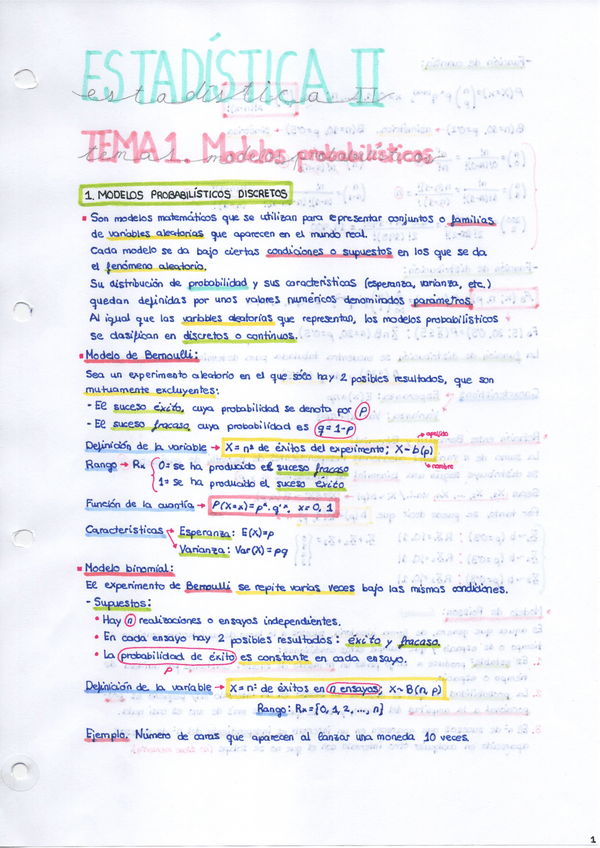 ESTADÍSTICA II
estadística II
TEMA 1. Modelos probabilísticos
1. MODELOS PROBABILÍSTICOS DISCRETOS
Son modelos matemáticos que se utilizan para representar conjuntos o familias
de variables aleatorias que aparecen en el mundo real.
Cada modelo se da bajo ciertas condiciones o supuestos en los que se da
el fenómeno aleatorio.
Su distribución de probabilidad y sus características (esperanza, varianza, etc.)
quedan definidas por unos valores numéricos denominados parámetros.
Al igual que las variables aleatorias que representan, los modelos probabilísticos
se clasifican en discretos o continuos.
Modelo de Bernoulli:
Sea un experimento aleatorio en el que sólo hay 2 posibles resultados, que son
mutuamente excluyentes:
- El suceso éxito, cuya probabilidad se denota por p
- El suceso fracaso, cuya probabilidad es q=1-p
apellido
Definición de la variable → X = nº de éxitos del experimento; X~b(p)
nombre
Rango → Rx { 0= se ha producido el suceso fracaso
1= se ha producido el suceso éxito
Función de la cuantía → P(X=x)=pˣ·q¹⁻ˣ, x=0,1
Características → Esperanza: E(X)=p
Varianza: Var(X)=pq
Modelo binomial:
El experimento de Bernoulli se repite varias veces bajo las mismas condiciones.
- Supuestos:
• Hay n realizaciones o ensayos independientes.
• En cada ensayo hay 2 posibles resultados: éxito y fracaso.
• La probabilidad de éxito es constante en cada ensayo.
p
Definición de la variable → X = nº de éxitos en n ensayos; X~B(n, p)
Rango: Rx={0, 1, 2, ..., n}
Ejemplo: Número de caras que aparecen al lanzar una moneda 10 veces.
1